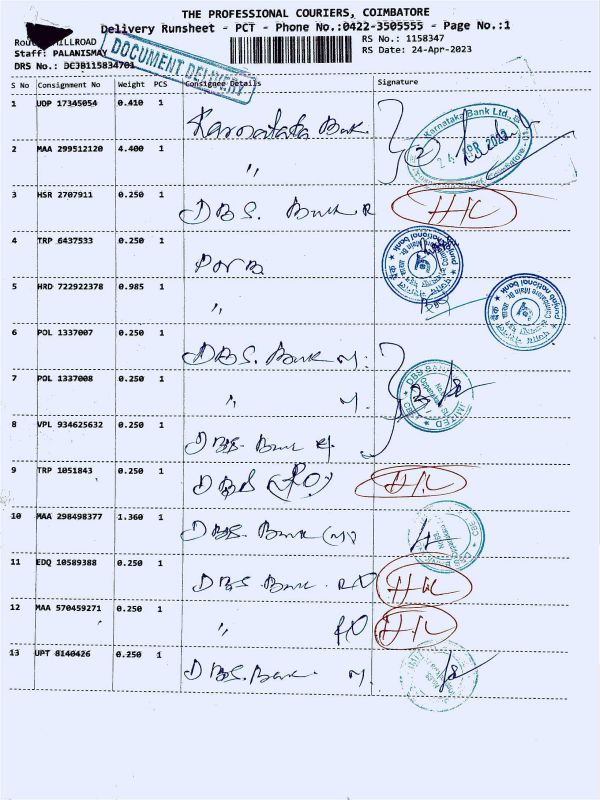 THE PROFESSIONAL COURIERS, COIMBATORE
Delivery Runsheet - PCT - Phone No.:0422-3505555 - Page No.:1
MILLROAD RS No.: 1158347
Staff: PALANISMAY RS Date: 24-Apr-2023
DRS No.: DCJB115834701
DOCUMENT DELIVERY
S No Consignment No Weight PCS Consignee Details Signature
1 UDP 17345054 0.410 1 Karnataka Bank
Karnataka Bank Ltd.,
2 MAA 299512120 4.400 1 "
3 HSR 2707911 0.250 1 DBS. Bank R
4 TRP 6437533 0.250 1 PNB
punjab national bank
5 HRD 722922378 0.985 1 "
punjab national bank
6 POL 1337007 0.250 1 DBS. Bank M.
7 POL 1337008 0.250 1 " M.
DBS BANK
LIMITED
8 VPL 934625632 0.250 1 DBS. Bank
9 TRP 1051843 0.250 1 DBS (RO)
10 MAA 298498377 1.360 1 DBS. Bank
11 EDQ 10589388 0.250 1 DBS. Bank. RO
12 MAA 570459271 0.250 1 " RO
13 UPT 8140426 0.250 1 DBS. Bank. M.